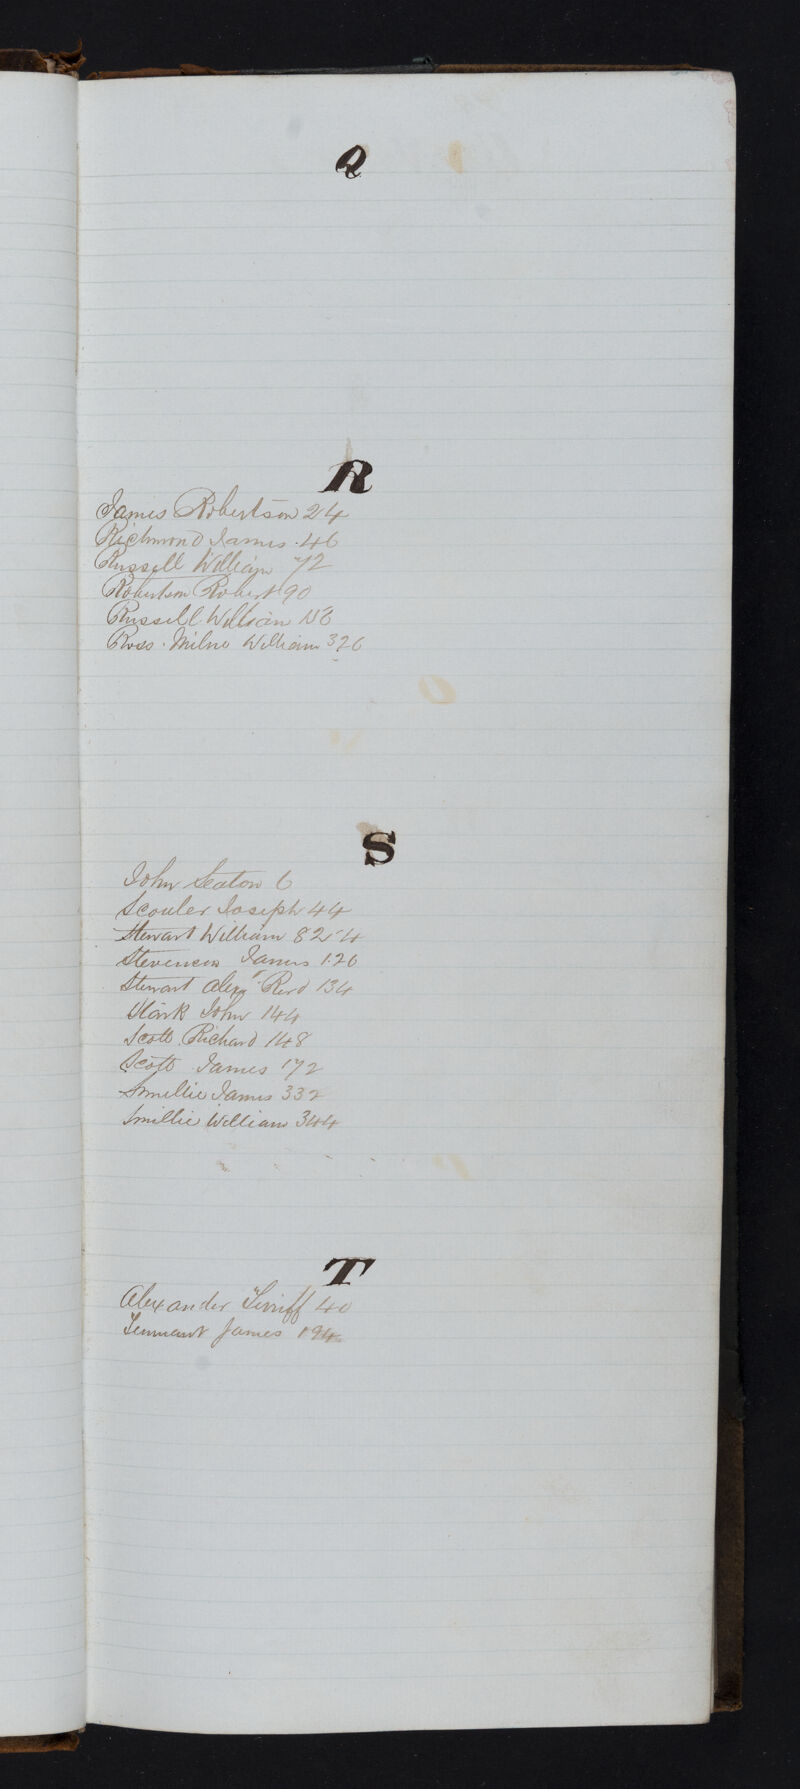 Q
R
James Robertson 24
Richmond James 46
Russell William 72
Robertson Robert 90
Russell William
Ross Milne William 326
S
John Seaton 6
Scouler Joseph 44
Stewart William 82
Stevenson James 126
Stewart Alexr Revd 134
Stark John 144
Scott Richard 148
Scott James 172
Smellie James 332
Smillie William 344
T
Alexander Tirriff 40
Tennant James 194